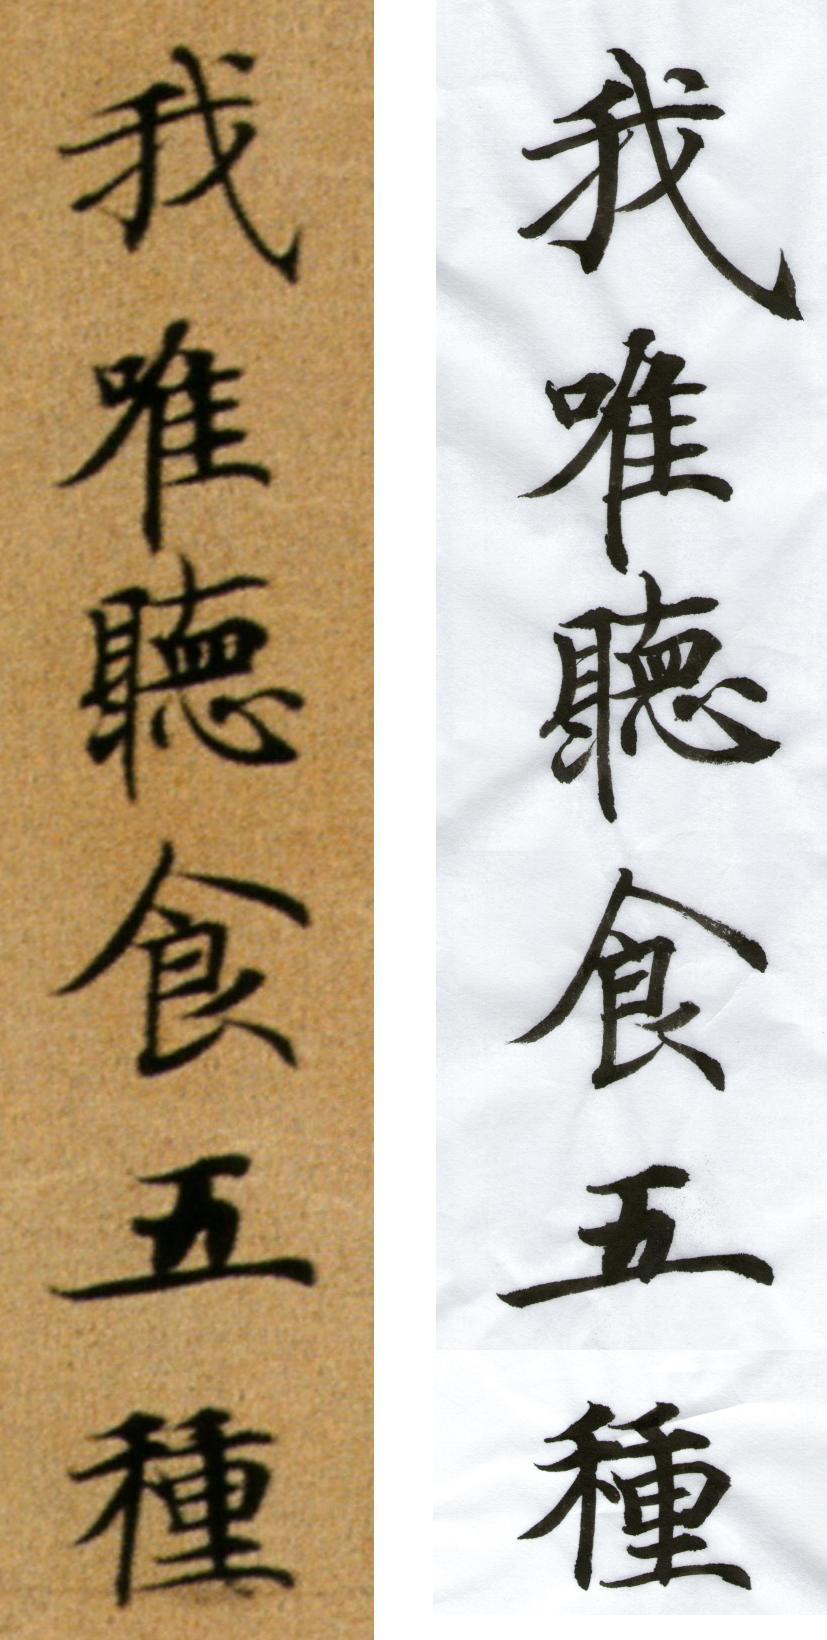 我唯聽食五種
我唯聽食五種